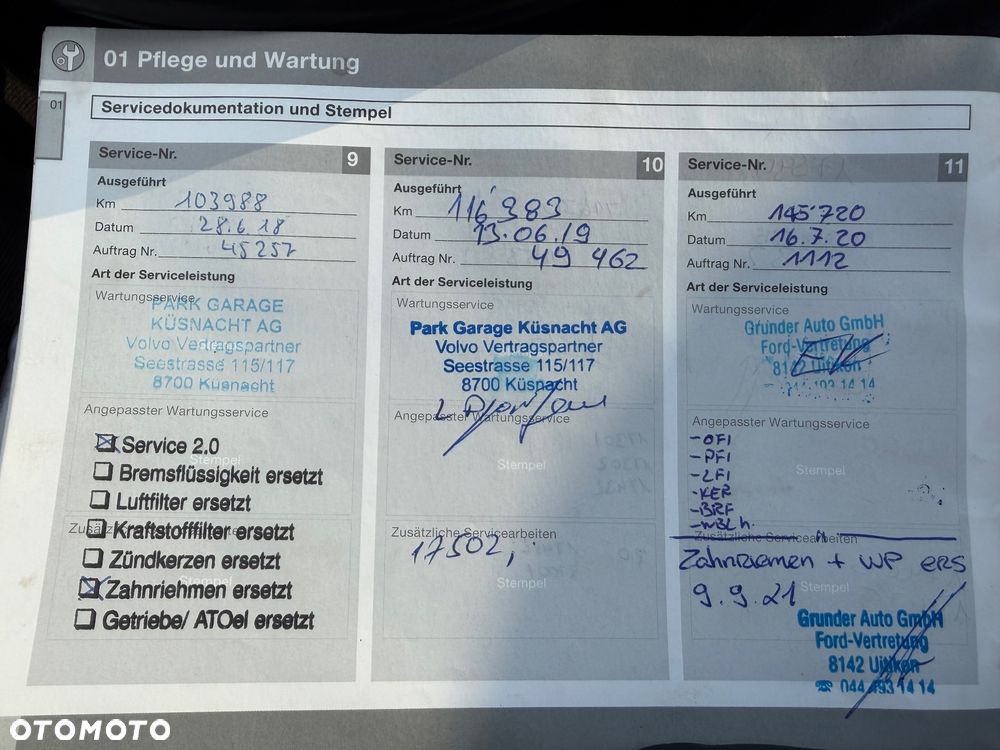 01 Pflege und Wartung
01
Servicedokumentation und Stempel
Service-Nr. 9
Ausgeführt
Km 103988
Datum 28.6.18
Auftrag Nr. 45257
Art der Serviceleistung
Wartungsservice
PARK GARAGE
KÜSNACHT AG
Volvo Vertragspartner
Seestrasse 115/117
8700 Küsnacht
Angepasster Wartungsservice
Service 2.0
Stempel
Bremsflüssigkeit ersetzt
Luftfilter ersetzt
Zusätzliche Servicearbeiten
Kraftstofffilter ersetzt
Zündkerzen ersetzt
Stempel
Zahnriehmen ersetzt
Getriebe/ ATOel ersetzt
Service-Nr. 10
Ausgeführt
Km 116'383
Datum 13.06.19
Auftrag Nr. 49 462
Art der Serviceleistung
Wartungsservice
Park Garage Küsnacht AG
Volvo Vertragspartner
Seestrasse 115/117
8700 Küsnacht
Angepasster Wartungsservice
Stempel
Zusätzliche Servicearbeiten
17502,
Stempel
Service-Nr. 11
Ausgeführt
Km 145'720
Datum 16.7.20
Auftrag Nr. 1112
Art der Serviceleistung
Wartungsservice
Grunder Auto GmbH
Ford-Vertretung
8142 Uitikon
044 493 14 14
Angepasster Wartungsservice
-OFI
-PFI
-LFI
-KER
-BRF
Stempel
Zusätzliche Servicearbeiten
Zahnriemen + WP ers
Stempel
9.9.21
Grunder Auto GmbH
Ford-Vertretung
8142 Uitikon
☎ 044 493 14 14
OTOMOTO